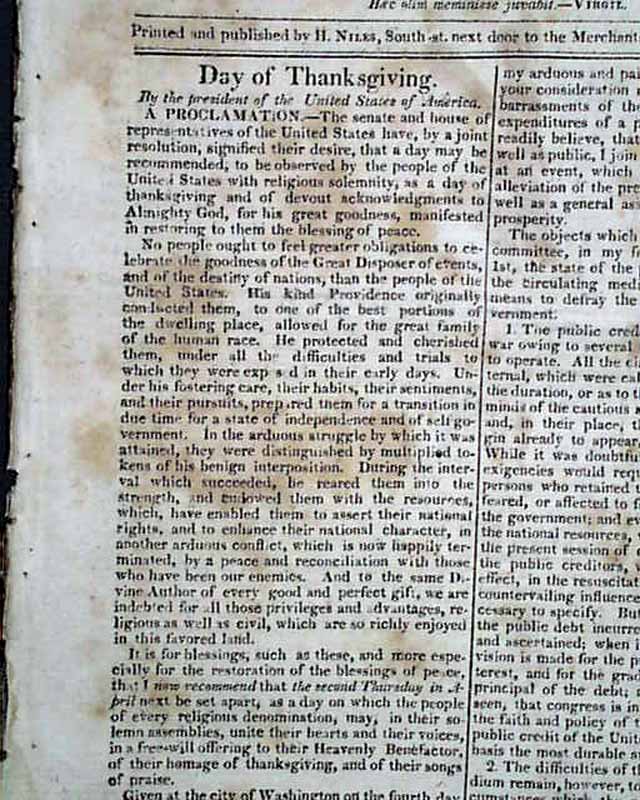 Hæc olim meminisse juvabit.—VIRGIL.
Printed and published by H. NILES, South-st. next door to the Merchants
Day of Thanksgiving.
By the president of the United States of America.
A PROCLAMATION.—The senate and house of
representatives of the United States have, by a joint
resolution, signified their desire, that a day may be
recommended, to be observed by the people of the
United States with religious solemnity, as a day of
thanksgiving and of devout acknowledgments to
Almighty God, for his great goodness, manifested
in restoring to them the blessing of peace.
No people ought to feel greater obligations to ce-
lebrate the goodness of the Great Disposer of events,
and of the destiny of nations, than the people of the
United States. His kind Providence originally
conducted them, to one of the best portions of
the dwelling place, allowed for the great family
of the human race. He protected and cherished
them, under all the difficulties and trials to
which they were exp s d in their early days. Un-
der his fostering care, their habits, their sentiments,
and their pursuits, prepared them for a transition in
due time for a state of independence and of self go-
vernment. In the arduous struggle by which it was
attained, they were distinguished by multiplied to-
kens of his benign interposition. During the inter-
val which succeeded, he reared them into the
strength, and endowed them with the resources,
which, have enabled them to assert their national
rights, and to enhance their national character, in
another arduous conflict, which is now happily ter-
minated, by a peace and reconciliation with those
who have been our enemies. And to the same Di-
vine Author of every good and perfect gift, we are
indebted for all those privileges and advantages, re-
ligious as well as civil, which are so richly enjoyed
in this favored land.
It is for blessings, such as these, and more espe-
cially for the restoration of the blessings of peace,
that I now recommend that the second Thursday in A-
pril next be set apart, as a day on which the people
of every religious denomination, may, in their so-
lemn assemblies, unite their hearts and their voices,
in a free-will offering to their Heavenly Benefactor,
of their homage of thanksgiving, and of their songs
of praise.
Given at the city of Washington on the fourth day
my arduous and
your consideration
barrassments of the
expenditures of a
readily believe, that
well as public, I join
at an event, which
alleviation of the
well as a general
prosperity.
The objects which
committee, in my
1st, the state of the
the circulating
means to defray the
vernment:
1. The public
war owing to several
to operate. All the
ternal, which were
the duration, or as to
minds of the cautious
and, in their place,
gin already to appear,
While it was doubtful
exigencies would
persons who retained
feared, or affected to
the government; and
the national resources,
the present session of
the public creditors,
effect, in the
countervailing influence
cessary to specify.
the public debt
and ascertained; when
vision is made for the
terest, and for the
principal of the debt;
seen, that congress is in
the faith and policy of
public credit of the
basis the most durable
2. The difficulties of
dium remain, however,